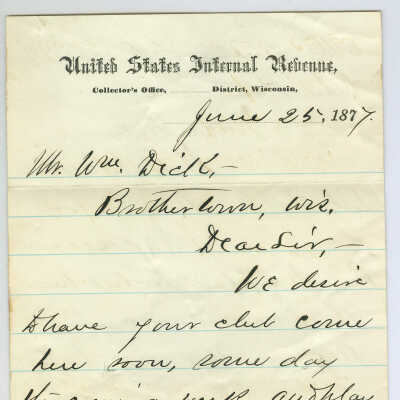 United States Internal Revenue,
Collector's Office, District, Wisconsin,
June 25, 1877.
Mr. Wm. Dick,-
Brothertown, Wis.
Dear Sir,-
We desire
to have your club come
here soon, some day
week, and play